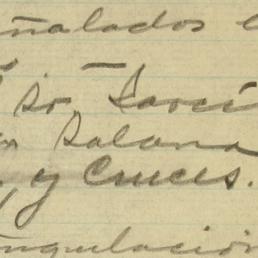 ñalados
Sr. Garcí
Solana
y Cruces.
ngulación